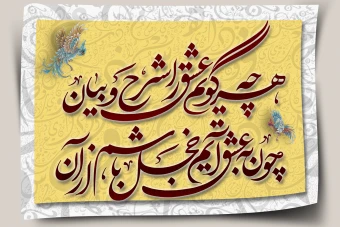 هرچه گویم عشق را شرح و بیان
چون عشق آیم خجل باشم از آن